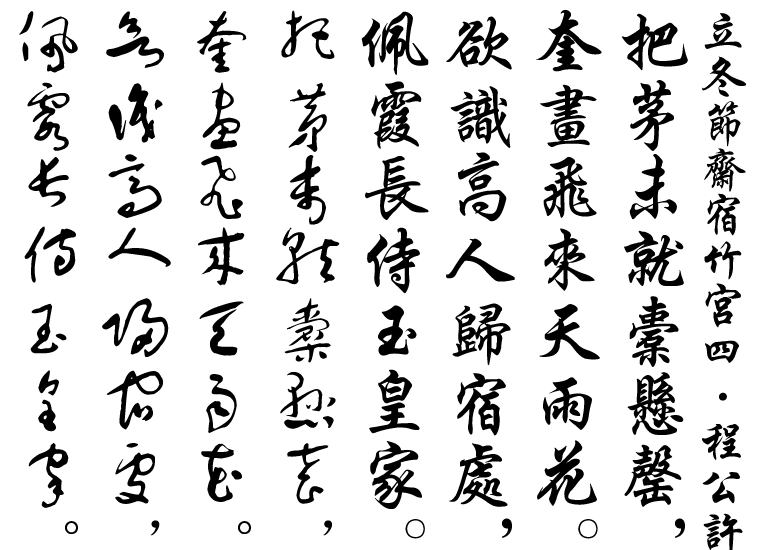 立冬節齋宿竹宮四・程公許
把茅未就橐懸罄，
奎畫飛來天雨花。
欲識高人歸宿處，
佩霞長侍玉皇家。
把茅未就橐懸罄，
奎畫飛來天雨花。
欲識高人歸宿處，
佩霞長侍玉皇家。